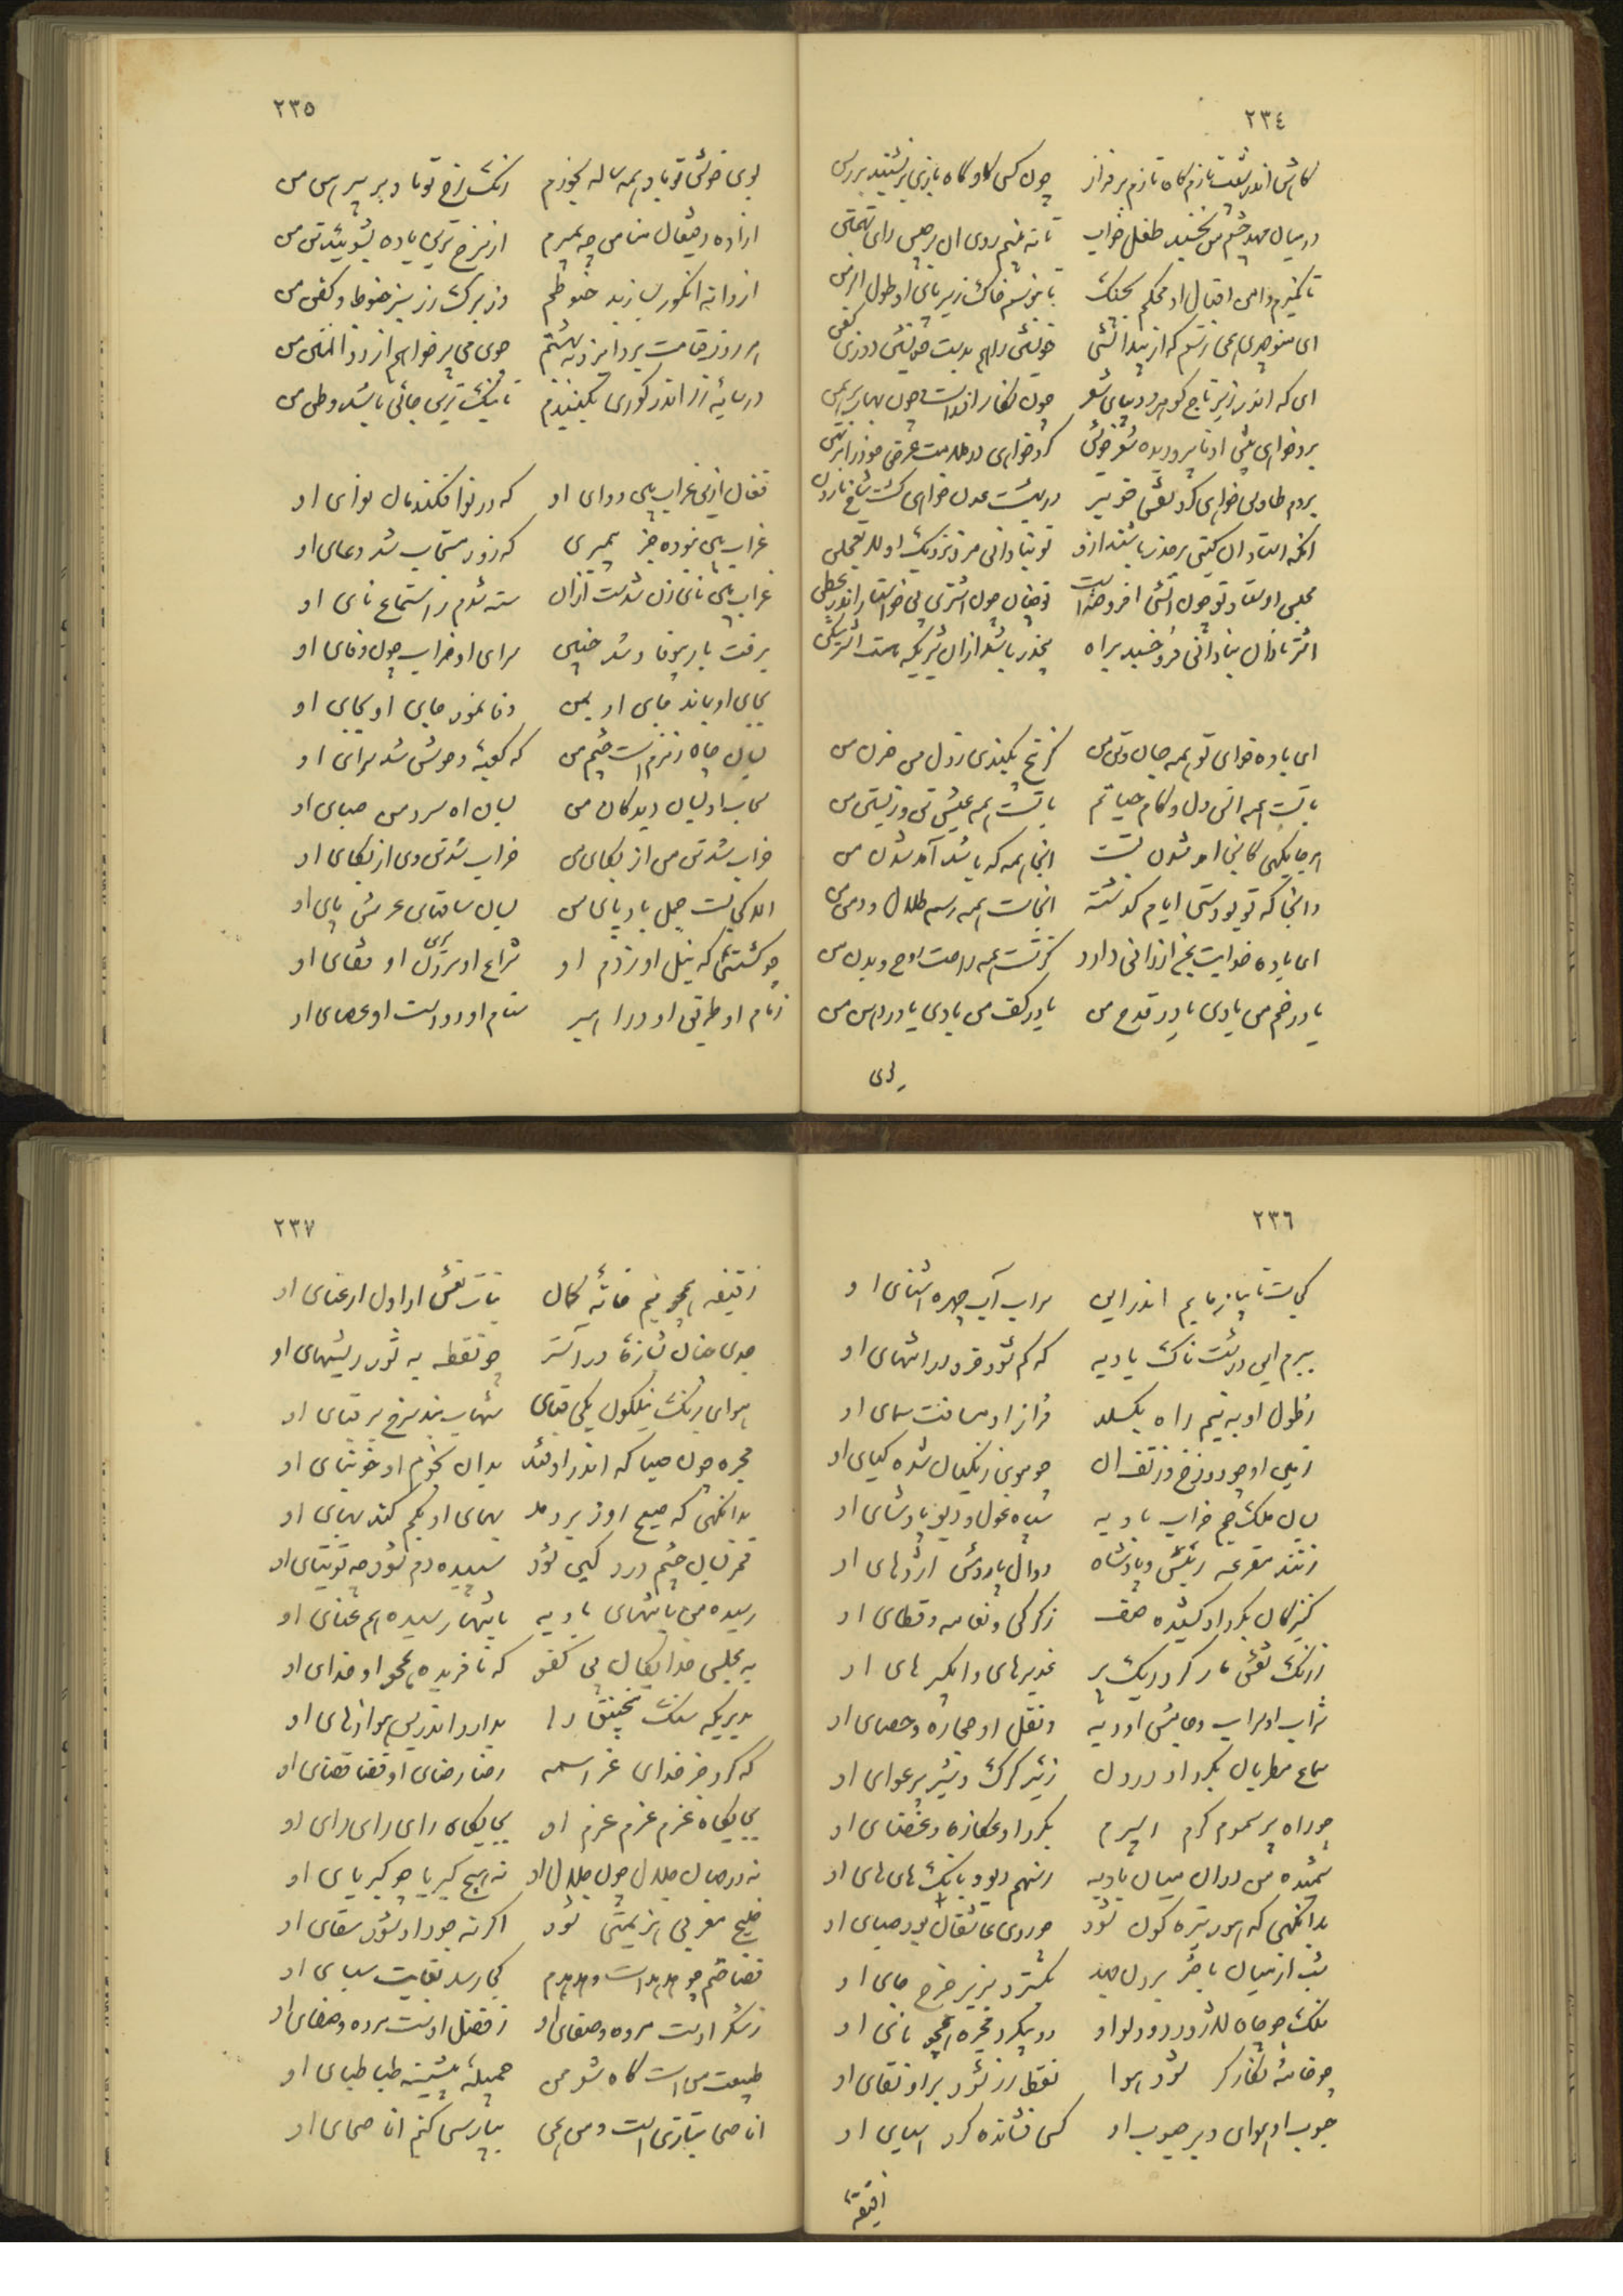 ٢٣٤
کاش اندر پشت تازم گاه تازم بر فراز چون کسی کاو گاه بازی بر نشیند بر رسن
در میان مهد چشم من نخسبد طفل خواب تا نه بینم روی آن برجیس رای تهمتن
تا نگیرم دامن اقبال او محکم بچنگ تا نبوسم خاک زیر پای او طول الزمن
ای منوچهری همی ترسم که از بیدانشی خویشتن را هم بدست خویشتن دوزی کفن
ای که اندر زیر تاج گوهر و دیبای شعر
برد خواهی پیش او ناپروریده شعر خویش کرد خواهی در ملامت عرض خود را مرتهن
بر دم طاوس خواهی کرد نقشی خوبتر در بهشت عدن خواهی کشت شاخ نارون
انکه استادان گیتی بر حذر باشند ازو تو بنادانی مرو نزدیک او لا تعجلن
مجلس استاد تو چون آتشی افروخته است تو چنان چون اشتر بی خواستار اندر عطن
اشتر نادان بنادانی فرو خسبد براه بیخبر باشد از ان شیری که هست اشتر شکن
ای باده فدای تو همه جان و تن من کز بیخ بکندی ز دل من حزن من
با تست همه انس دل و کام حیاتم با تست همه عیش تن و زیستن من
هر جایگهی کانجا امد شدن تست انجا همه گه باشد آمد شدن من
وانجا که تو بودستی ایام گذشته انجاست همه رسم طلال و دمن من
ای باده خدایت بمن ارزانی دارد کز تست همه راحت روح و بدن من
یا در خم من بادی یا در قدح من یا در کف من بادی یا در دهن من
بوی
٢٣٥
بوی خوش تو باد همه ساله بخورم رنگ رخ تو باد بر پیراهن من
ازاده رفیقان منا من چه بمیرم از سرخ ترین باده بشویید تن من
از دانه انگور بسازید حنوطم وز برگ رز سبز حنوط و کفن من
هر روز قیامت برد ایزد به بهشتم جوی می پر خواهم از ذوالمنن من
در سایه رز اندر گوری بکنیدم تا نیک ترین جائی باشد وطن من
فغان ازین غراب بین و وای او که در نوا فکندمان نوای او
غراب بین نبوده جز پیمبری که زود مستجاب شد دعای او
غراب بین نای زن شدست ازان سته شدم ز استماع نای او
برفت یار بیوفا و شد چنین سرای او خراب چون وفای او
بجای او بماند جای او بمن وفا نمود جای او بجای او
بسان چاه زمزم است چشم من که کعبه وحوش شد سرای او
سحاب او بسان دیدگان من بسان اه سرد من صبای او
خراب شد تن من از بکای من خراب شد تن وی از بکای او
الا کجاست جمل بادپای من بسان ساقهای عرش پای او
چو کشتیئی که بیل او ز دم او شراع او سرون او قفای او
زمام او طریق او و راهبر سنام او دو دست او عصای او
٢٣٦
کجاست تا بیازمایم اندر این سراب آب چهره اشنای او
ببرم این درشت ناک بادیه که گم شود خرد در انتهای او
ز طول او به نیم راه بگسلد فراز او مسافت سمای او
زمین او چو دوزخ و ز تف ان چو موی زنگیان شده گیای او
بسان ملک جم خراب بادیه سپاه غول و دیو پادشای او
زنند مقرعه به پیش پادشاه دوال مار و نیش اژدهای او
کنیزکان بگرد او کشیده صف ز کرکی و نعامه و قطای او
ز رنگ نقش مار کرد ریگ پر غدیرهای و ابگیرهای او
شراب او سراب و جامش اودیه و نقل او حجاره و حصای او
سماع مطربان بگرد او درون زئیر گرگ و شیر پر عوای او
چو راه پر سموم گرم اسپرم بگرد او عکازه و غضنای او
شمیده من دران میان بادیه ز سهم دیو و بانگ های های او
بدانگهی که هور تیره گون شود چو روی عاشقان بود صیای او
شب از میان باختر برون جهد بگسترد بزیر چرخ جای او
فلک چو چاه لاژورد و دلو او دو پیکر و مجره همچو نای او
چو خانه شود هوا نقط زر شود بر او نقای او
جنوب او هوای دبر جنوب او کسی فشانده کرد اسیای او
زقیفه
٢٣٧
زقیفه همچو نیم خانه کمان بنات نعش از اول از عنای او
جدی چنان شازه در آستر چو نقطه به ثور ریشهای او
هوای رنگ نیلگون یکی قبای شهاب بند سرخ بر قبای او
مجره چون ضیا که اندر اوفتد بدان نجوم او خوشبای او
بدانگهی که صبح روز بردمد بهای او بکم کند بهای او
قمر بسان چشم دردگین شود سپیده دم شود چه توتیای او
رسیده من بانتهای بادیه بانتها رسیده هم عنای او
به مجلس خدایگان بی کفو که نافریده همچو او خدای او
که کرد جز خدای عز اسمه رضا رضای او قضا قضای او
بجایگاه عزم عزم عزم او بجایگاه رای رای رای او
نه در جهان جلال چون جلال او نه هیچ کبریا چو کبریای او
خلیج مغربی هزیمتی شود اگر نه جود او شود سقای او
کجا رسد بغایت سبای او
ز شکر اوست مروه و صفای او ز فضل اوست مروه و صفای او
طبیعت من است گاه شعر من جمیله بثینه طباطبای او
انا صحا بتازی است و من همی بپارسی کنم انا صحای او